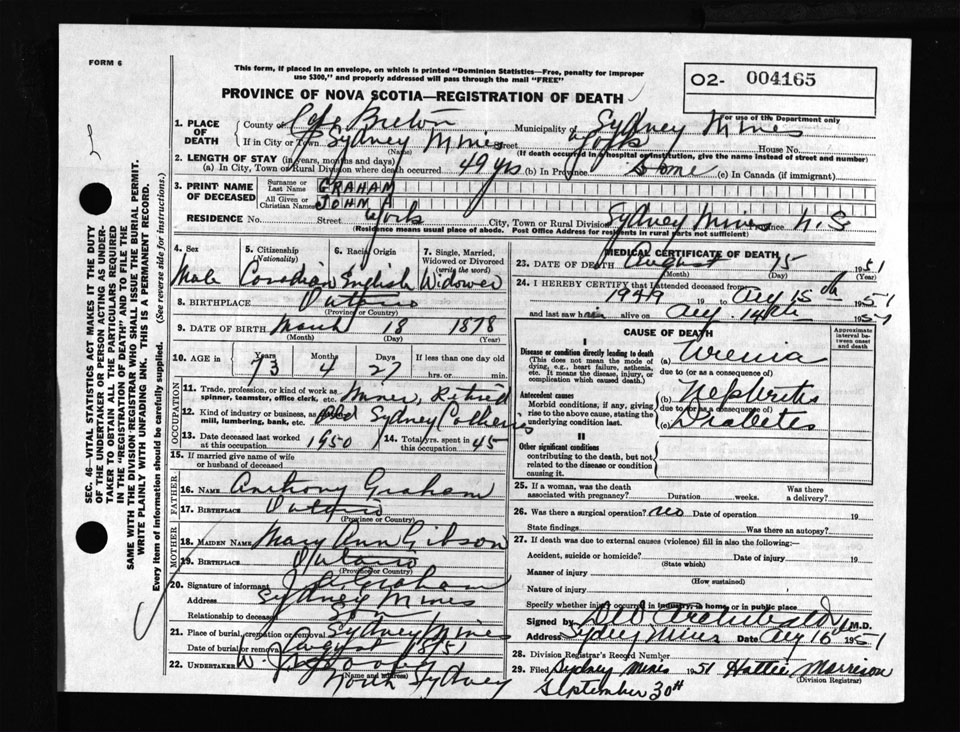 FORM 6
This form, if placed in an envelope, on which is printed "Dominion Statistics—Free, penalty for improper
use $300," and properly addressed will pass through the mail "FREE"
02- 004165
PROVINCE OF NOVA SCOTIA—REGISTRATION OF DEATH
For use of the Department only
1. PLACE OF DEATH
County of Cape Breton Municipality of Sydney Mines
If in City or Town Sydney Mines Street House No.
(Name) (If death occurred in a hospital or institution, give the name instead of street and number)
2. LENGTH OF STAY (in years, months and days)
(a) In City, Town or Rural Division where death occurred 49 yrs (b) In Province (c) In Canada (if immigrant)
3. PRINT NAME OF DECEASED
Surname or Last Name GRAHAM
All Given or Christian Names JOHM A
RESIDENCE No. Street York City, Town or Rural Division Sydney Mines Province N.S
(Residence means usual place of abode. Post Office Address for residents in rural parts not sufficient)
4. Sex
Male
5. Citizenship (Nationality)
Canadian
6. Racial Origin
English
7. Single, Married, Widowed or Divorced (write the word)
Widower
8. BIRTHPLACE Ontario
(Province or Country)
9. DATE OF BIRTH March 18 1878
(Month) (Day) (Year)
10. AGE in Years Months Days If less than one day old
73 4 27 hrs. or min.
OCCUPATION
11. Trade, profession, or kind of work as spinner, teamster, office clerk, etc. Miner, Retired
12. Kind of industry or business, as mill, lumbering, bank, etc. Old Sydney Collieries
13. Date deceased last worked at this occupation 1950
14. Total yrs. spent in this occupation 45
15. If married give name of wife or husband of deceased
FATHER
16. NAME Anthony Graham
17. BIRTHPLACE Ontario
(Province or Country)
MOTHER
18. MAIDEN NAME Mary Ann Gibson
19. BIRTHPLACE Ontario
(Province or Country)
20. Signature of informant Graham
Address Sydney Mines
Relationship to deceased Son
21. Place of burial, cremation or removal Sydney Mines
Date of burial or removal August 18/51
22. UNDERTAKER W.
(Name and address)
North Sydney
MEDICAL CERTIFICATE OF DEATH
23. DATE OF DEATH August 15 1951
(Month) (Day) (Year)
24. I HEREBY CERTIFY that I attended deceased from
1949 19 to Aug 15th 1951
and last saw him alive on Aug. 14th 1951
CAUSE OF DEATH
Approximate interval between onset and death
I
Disease or condition directly leading to death
(This does not mean the mode of dying, e.g., heart failure, asthenia, etc. It means the disease, injury, or complication which caused death.)
(a) Uremia
due to (or as a consequence of)
Antecedent causes
Morbid conditions, if any, giving rise to the above cause, stating the underlying condition last.
(b) Nephritis
due to (or as a consequence of)
(c) Diabetes
II
Other significant conditions
contributing to the death, but not related to the disease or condition causing it.
25. If a woman, was the death associated with pregnancy? Duration weeks. Was there a delivery?
26. Was there a surgical operation? no Date of operation 19
State findings Was there an autopsy?
27. If death was due to external causes (violence) fill in also the following:—
Accident, suicide or homicide? Date of injury 19
(State which)
Manner of injury
(How sustained)
Nature of injury
Specify whether injury occurred in industry, in home, or in public place
Signed by Archibald M.D.
Address Sydney Mines Date Aug 16th 1951
28. Division Registrar's Record Number
29. Filed Sydney Mines 1951 Hattie Morrison
(Division Registrar)
September 30th
SEC. 46—VITAL STATISTICS ACT MAKES IT THE DUTY
OF THE UNDERTAKER OR PERSON ACTING AS UNDER-
TAKER TO OBTAIN ALL THE PARTICULARS REQUIRED
IN THE "REGISTRATION OF DEATH" AND TO FILE THE
SAME WITH THE DIVISION REGISTRAR WHO SHALL ISSUE THE BURIAL PERMIT.
WRITE PLAINLY WITH UNFADING INK. THIS IS A PERMANENT RECORD.
Every item of information should be carefully supplied. (See reverse side for instructions.)